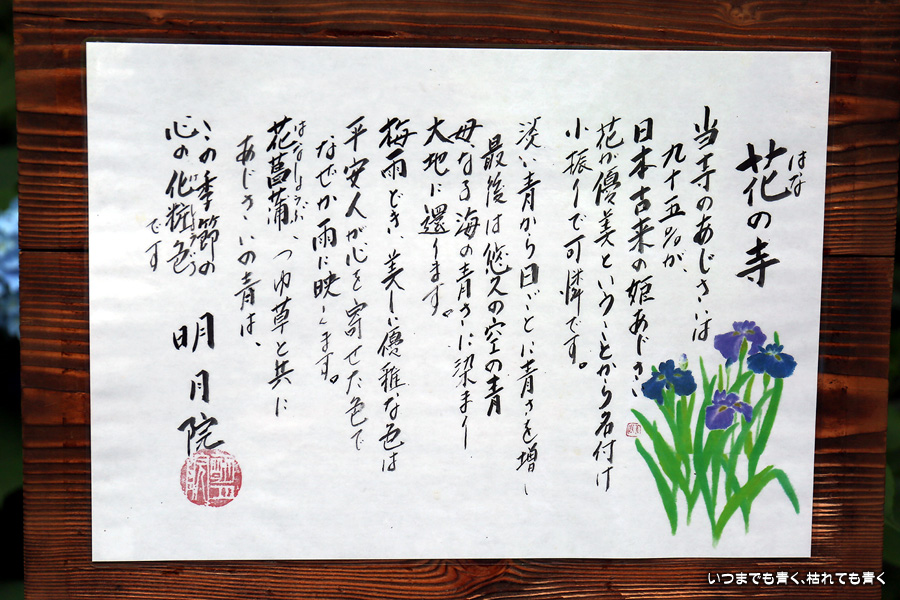 花の寺
はな
当寺のあじさいは
九十五%が、
日本古来の姫あじさい
花が優美ということから名付け
小振りで可憐です。
淡い青から日ごとに青さを増し
最後は悠久の空の青
母なる海の青さに染まり
大地に還ります。
梅雨どき、美しい優雅な色は
平安人が心を寄せた色で
なぜか雨に映えます。
花菖蒲、つゆ草と共に
はなしょうぶ
あじさいの青は、
この季節の
心の化粧色です
明月院
いつまでも青く、枯れても青く